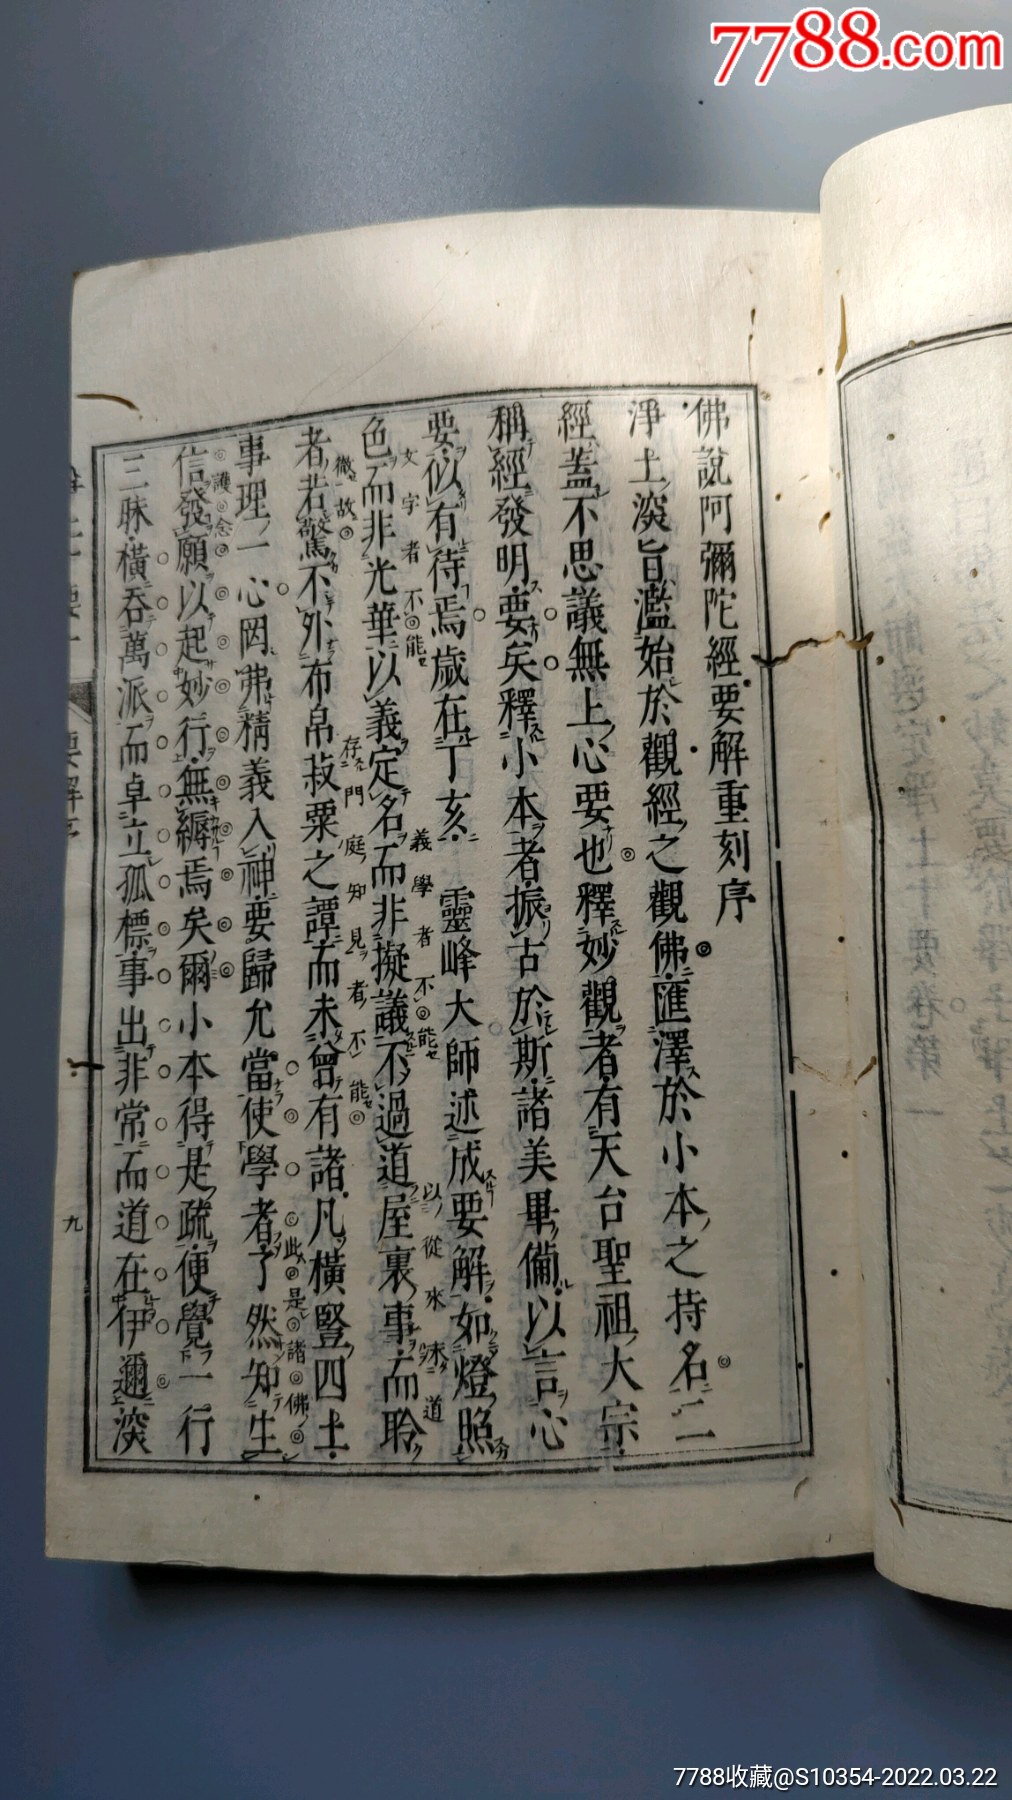 7788.com
佛說阿彌陀經要解重刻序
淨土深旨濫始於觀經之觀佛匯澤於小本之持名二
經蓋不思議無上心要也釋妙觀者有天台聖祖大宗
稱經發明要矣釋小本者振古於斯諸美畢備以言心
要似有待焉歲在丁亥 靈峰大師述成要解如燈照
文字者不能 義學者不能 以從來未道
色而非光華以義定名而非擬議不過道屋裏事而聆
微故 存門庭知見者不能
者若驚不外布帛菽粟之譚而未曾有諸凡橫豎四土
事理一心罔弗精義入神要歸允當使學者了然知生
護念 此是諸佛
信發願以起妙行無縟焉矣爾小本得是疏便覺一行
三昧橫吞萬派而卓立孤標事出非常而道在伊邇深
要解序
九
7788收藏@S10354-2022.03.22